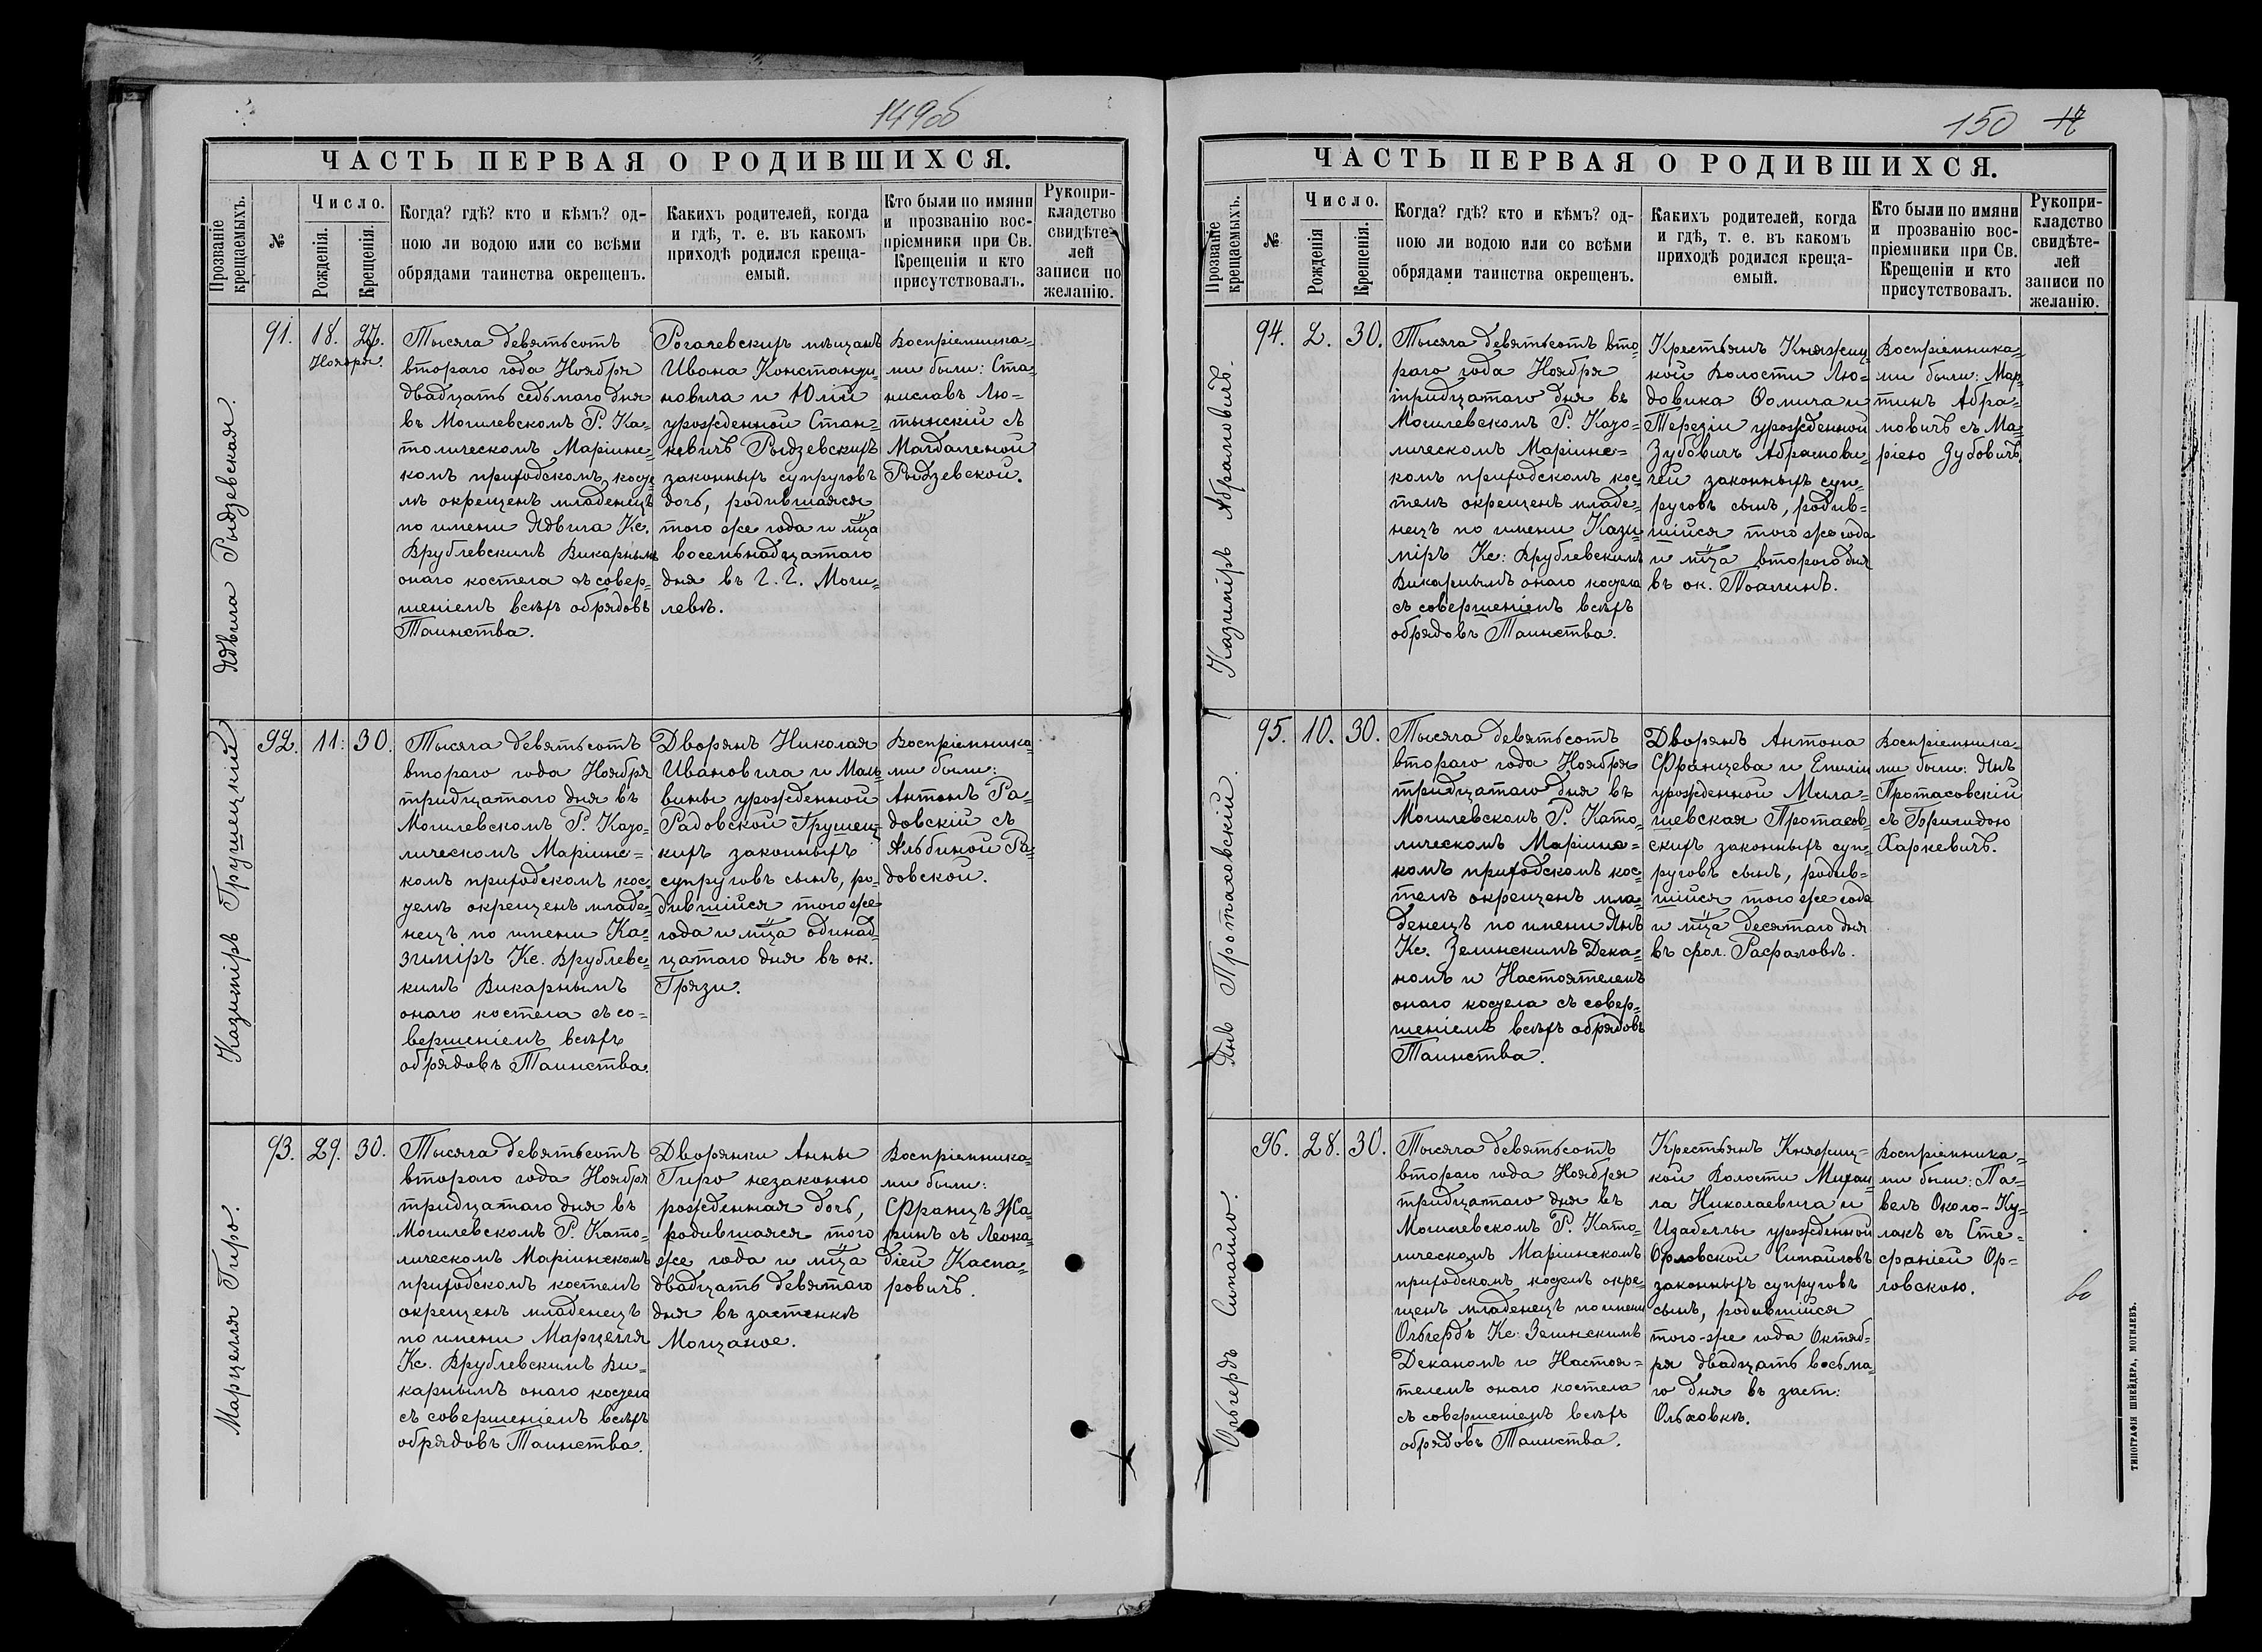 149об
ЧАСТЬ ПЕРВАЯ О РОДИВШИХСЯ.
Прозваніе крещаемыхъ.
№
Число.
Рожденія.
Крещенія.
Когда? гдѣ? кто и кѣмъ? од-
ною ли водою или со всѣми
обрядами таинства окрещенъ.
Какихъ родителей, когда
и гдѣ, т. е. въ какомъ
приходѣ родился креща-
емый.
Кто были по имяни
и прозванію вос-
пріемники при Св.
Крещеніи и кто
присутствовалъ.
Рукопри-
кладство
свидѣте-
лей
записи по
желанію.
Ядвига Рыдзевская.
91.
18.
27.
Ноября.
Тысяча девятьсотъ
втораго года Ноября
двадцать седьмаго дня
въ Могилевскомъ Р. Ка-
толическомъ Маріинс=
комъ приходскомъ косте
лѣ окрещенъ младенецъ
по имени Ядвига Кс.
Врублевскимъ Викарнымъ
онаго костела съ совер=
шеніемъ всѣхъ обрядовъ
Таинства.
Рогачевскихъ мѣщанъ
Ивана Константи-
новича и Юліи
урожденной Стан=
кевичъ Рыдзевскихъ
законныхъ супруговъ
дочь, родившаяся
того же года и мѣца
восемьнадцатаго
дня въ Г. Г. Моги=
левѣ.
Воспріемника=
ми были: Ста=
ниславъ Лю=
тынскій съ
Магдаленой
Рыдзевской.
Казиміръ Грушецкій
92.
11.
30.
Тысяча девятьсотъ
втораго года Ноября
тридцатаго дня въ
Могилевскомъ Р. Като=
лическомъ Маріинс=
комъ приходскомъ кос=
телѣ окрещенъ младе=
нецъ по имени Ка=
зиміръ Кс. Врублевс=
кимъ Викарнымъ
онаго костела съ со=
вершеніемъ всѣхъ
обрядовъ Таинства.
Дворянъ Николая
Ивановича и Маль
вины урожденной
Радовской Грушец=
кихъ законныхъ
супруговъ сынъ, ро=
дившійся того же
года и мѣца одинад=
цатаго дня въ ок.
Грязи.
Воспріемника=
ми были:
Антонъ Ра=
довскій съ
Альбиной Ра=
довской.
Марцелля Гиро.
93.
29.
30.
Тысяча девятьсотъ
втораго года Ноября
тридцатаго дня въ
Могилевскомъ Р. Като=
лическомъ Маріинскомъ
приходскомъ костелѣ
окрещенъ младенецъ
по имени Марцелля
Кс. Врублевскимъ Ви=
карнымъ онаго костела
съ совершеніемъ всѣхъ
обрядовъ Таинства.
Дворянки Анны
Гиро незаконно
рожденная дочь,
родившаяся того
же года и мѣца
двадцать девятаго
дня въ застенкѣ
Мощаное.
Воспріемника=
ми были:
Францъ Жа=
ринъ съ Леока=
діей Каспа=
ровичъ.
150 17
ЧАСТЬ ПЕРВАЯ О РОДИВШИХСЯ.
Прозваніе крещаемыхъ.
№
Число.
Рожденія
Крещенія.
Когда? гдѣ? кто и кѣмъ? од-
ною ли водою или со всѣми
обрядами таинства окрещенъ.
Какихъ родителей, когда
и гдѣ, т. е. въ какомъ
приходѣ родился креща-
емый.
Кто были по имяни
и прозванію вос-
пріемники при Св.
Крещеніи и кто
присутствовалъ.
Рукопри-
кладство
свидѣте-
лей
записи по
желанію.
Казиміръ Абрамовичъ.
94.
2.
30.
Тысяча девятьсотъ вто=
раго года Ноября
тридцатаго дня въ
Могилевскомъ Р. Като=
лическомъ Маріинс=
комъ приходскомъ кос=
телѣ окрещенъ младе=
нецъ по имени Кази
міръ Кс: Врублевскимъ
Викарнымъ онаго костела
съ совершеніемъ всѣхъ
обрядовъ Таинства.
Крестьянъ Княжиц=
кой Волости Лю=
довика Ѳомича и
Терезіи урожденной
Зубовичъ Абрамови=
чей законныхъ суп=
руговъ сынъ, родив=
шійся того же года
и мѣца втораго дня
въ ок.
Воспріемника=
ми были: Мар=
тинъ Абра=
мовичъ съ Ма=
ріею Зубовичъ.
Янъ Протасовскій.
95.
10.
30.
Тысяча девятьсотъ
втораго года Ноября
тридцатаго дня въ
Могилевскомъ Р. Като=
лическомъ Маріинс=
комъ приходскомъ кос=
телѣ окрещенъ мла=
денецъ по имени Янъ
Кс. Зелинскимъ Дека=
номъ и Настоятелемъ
онаго костела съ совер=
шеніемъ всѣхъ обрядовъ
Таинства.
Дворянъ Антона
Францева и Емиліи
урожденной Мила=
шевская Протасов=
скихъ законныхъ суп=
руговъ сынъ, родив=
шійся того же года
и мѣца десятаго дня
въ фол. Рафаловѣ.
Воспріемника=
ми были: Янъ
Протасовскій
съ Бригидою
Харкевичъ.
Ольгердъ Сипайло.
96.
28.
30.
Тысяча девятьсотъ
втораго года Ноября
тридцатаго дня въ
Могилевскомъ Р. Като=
лическомъ Маріинскомъ
приходскомъ костелѣ окре=
щенъ младенецъ по имени
Ольгердъ Кс. Зелинскимъ
Деканомъ и Настоя=
телемъ онаго костела
съ совершеніемъ всѣхъ
обрядовъ Таинства.
Крестьянъ Княжиц=
кой Волости Михаи
ла Николаевича и
Изабеллы урожденной
Орловской Сипайловъ
законныхъ супруговъ
сынъ, родившійся
того-же года Октяб=
ря двадцать восьма
го дня въ заст:
Ольховкѣ.
Воспріемника=
ми были: Па=
велъ Около-Ку=
лакъ съ Сте=
фаніей Ор=
ловскою.
во
ТИПОГРАФІЯ ШНЕЙДЕРА, МОГИЛЕВЪ.